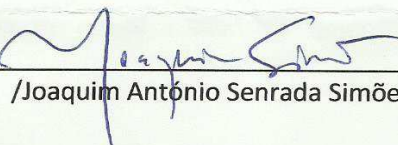 Joaquim Simõ
/Joaquim António Senrada Simõe